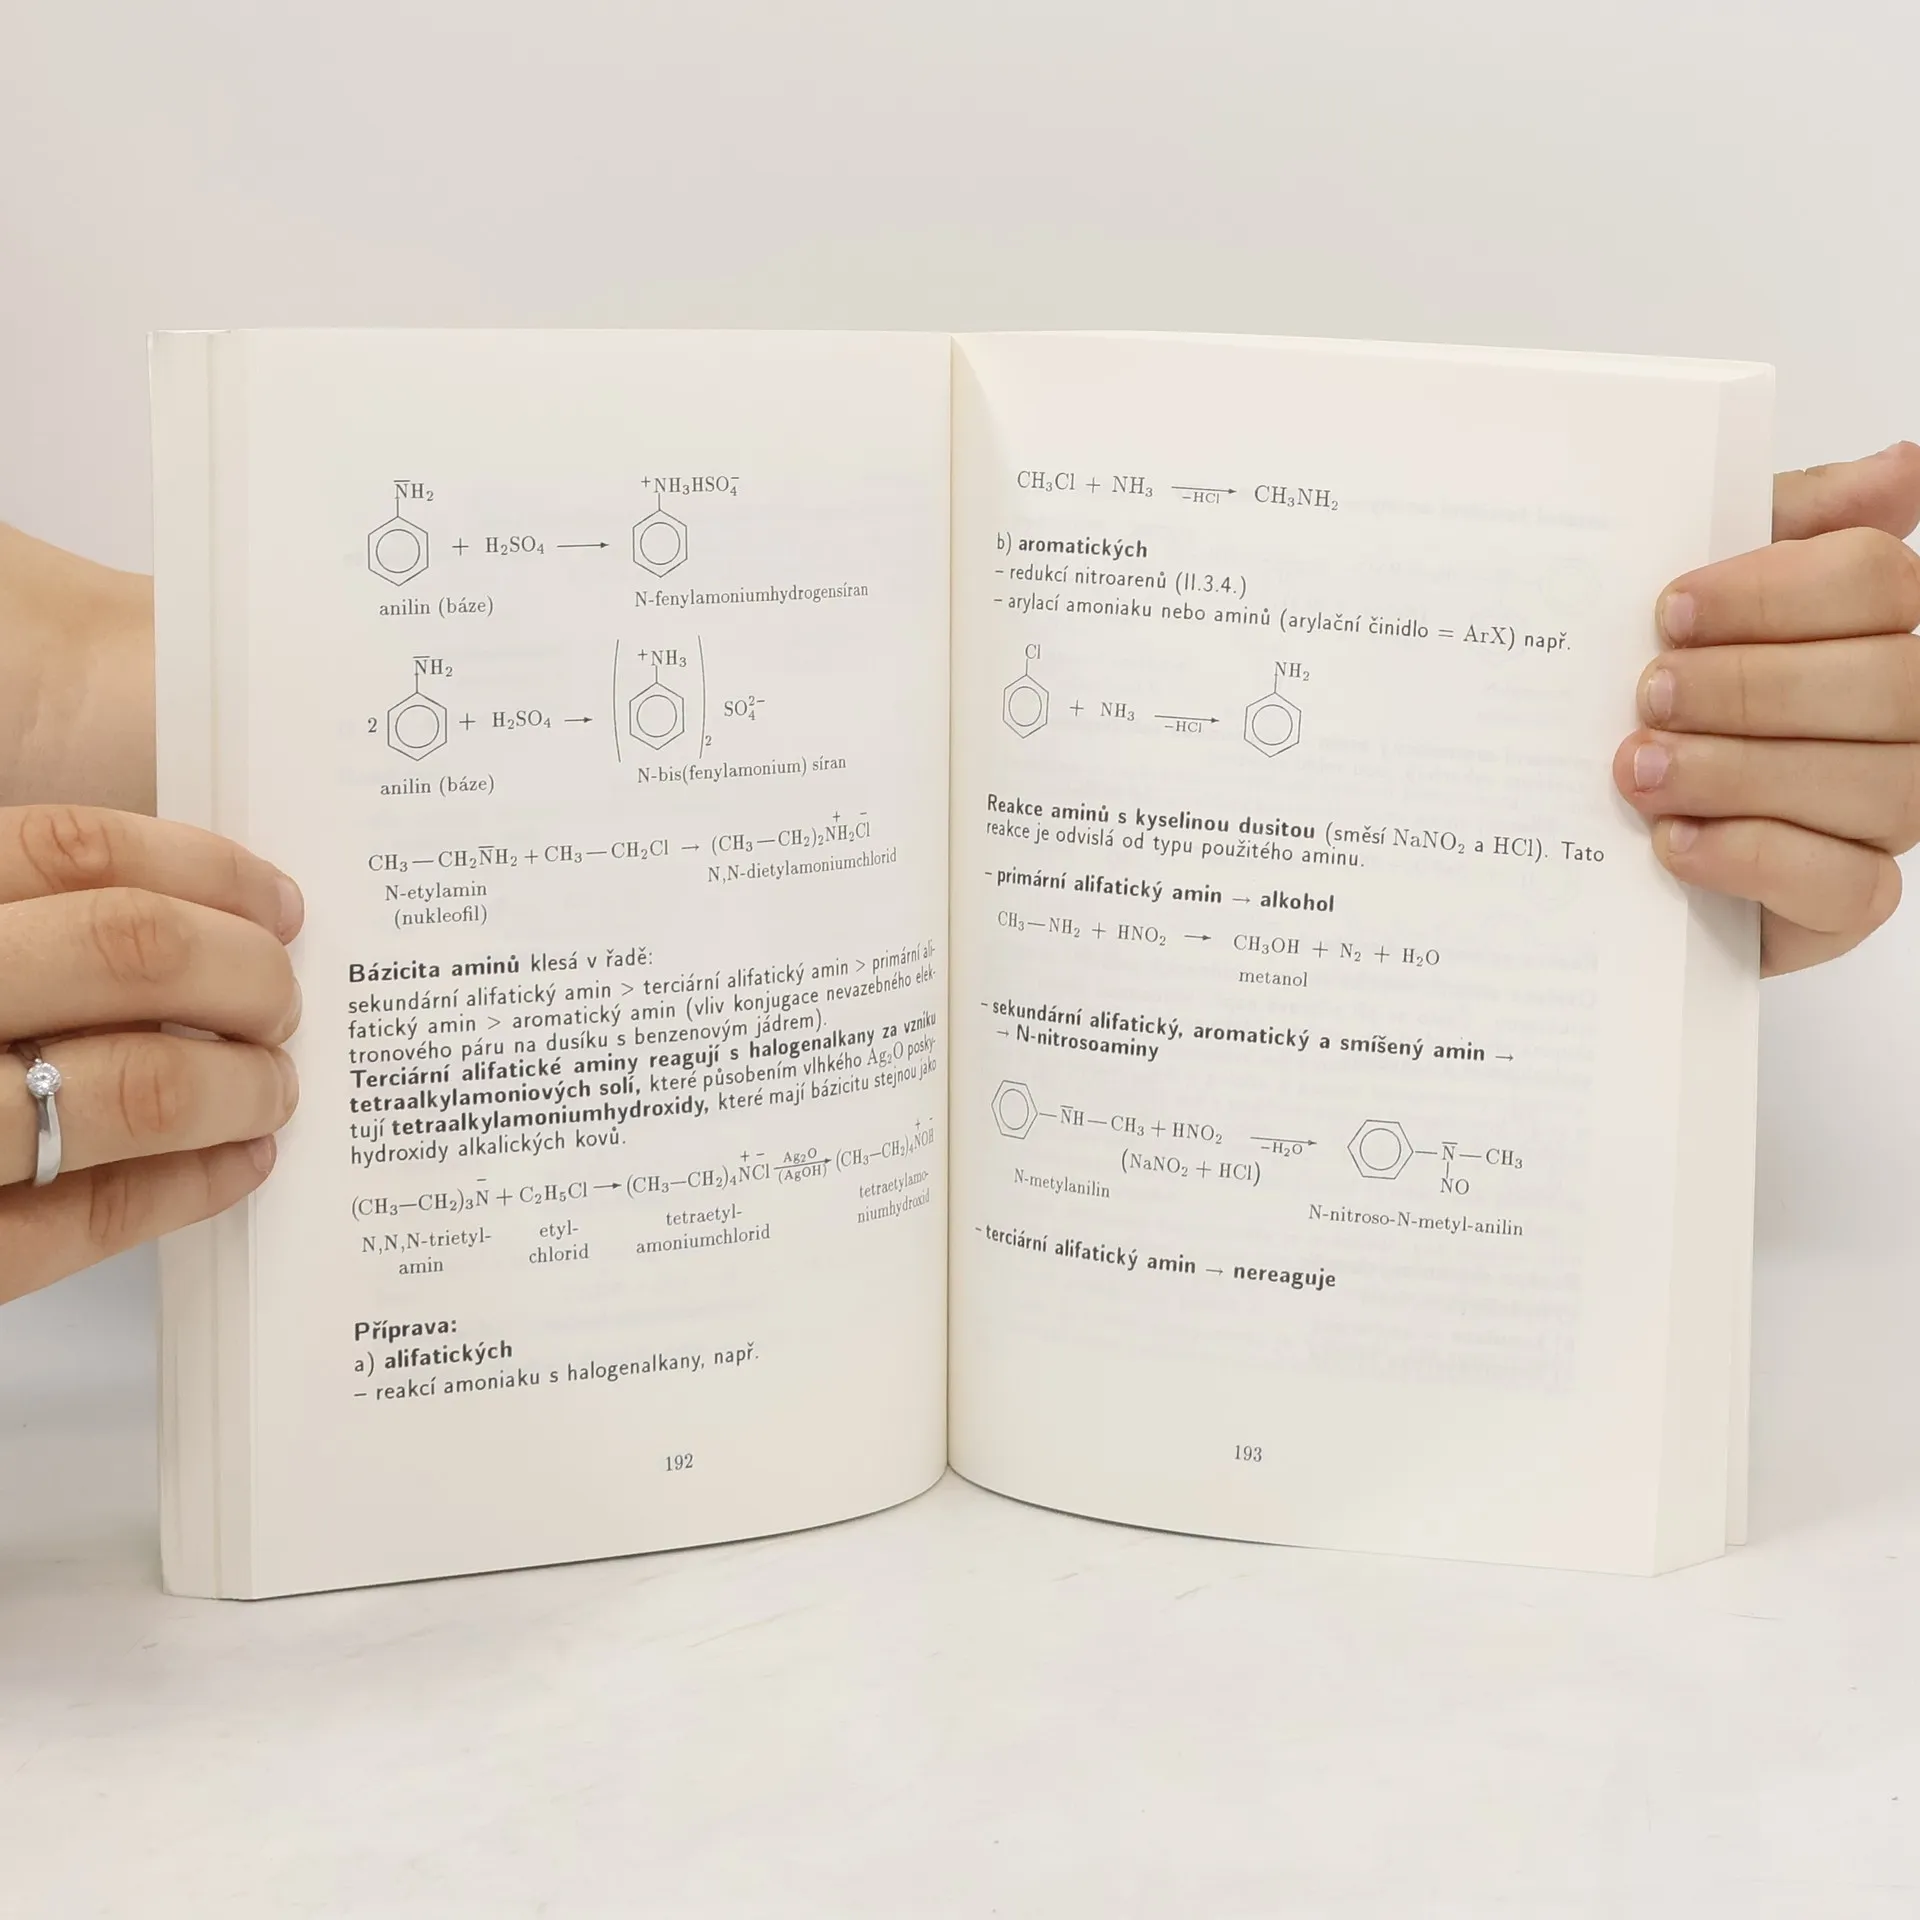 N̅H₂
⁺NH₃HSO₄⁻
+ H₂SO₄ ⟶
anilin (báze)
N-fenylamoniumhydrogensíran
N̅H₂
⁺NH₃
2 + H₂SO₄ → ( )₂ SO₄²⁻
anilin (báze)
N-bis(fenylamonium) síran
CH₃—CH₂N̅H₂ + CH₃—CH₂Cl → (CH₃—CH₂)₂N⁺H₂Cl⁻
N-etylamin
(nukleofil)
N,N-dietylamoniumchlorid
Bázicita aminů klesá v řadě:
sekundární alifatický amin > terciární alifatický amin > primární ali-
fatický amin > aromatický amin (vliv konjugace nevazebného elek-
tronového páru na dusíku s benzenovým jádrem).
Terciární alifatické aminy reagují s halogenalkany za vzniku
tetraalkylamoniových solí, které působením vlhkého Ag₂O posky-
tují tetraalkylamoniumhydroxidy, které mají bázicitu stejnou jako
hydroxidy alkalických kovů.
(CH₃—CH₂)₃N̅ + C₂H₅Cl ⟶ (CH₃—CH₂)₄N⁺Cl⁻ Ag₂O (AgOH) → (CH₃—CH₂)₄N⁺OH⁻
N,N,N-trietyl-
amin
etyl-
chlorid
tetraetyl-
amoniumchlorid
tetraetylamo-
niumhydroxid
Příprava:
a) alifatických
– reakcí amoniaku s halogenalkany, např.
192
CH₃Cl + NH₃ −HCl → CH₃NH₂
b) aromatických
– redukcí nitroarenů (II.3.4.)
– arylací amoniaku nebo aminů (arylační činidlo = ArX) např.
Cl
NH₂
+ NH₃ −HCl →
Reakce aminů s kyselinou dusitou (směsí NaNO₂ a HCl). Tato
reakce je odvislá od typu použitého aminu.
– primární alifatický amin → alkohol
CH₃—NH₂ + HNO₂ → CH₃OH + N₂ + H₂O
metanol
– sekundární alifatický, aromatický a smíšený amin →
→ N-nitrosoaminy
—N̅H—CH₃ + HNO₂ −H₂O → —N̅—CH₃
(NaNO₂ + HCl)
NO
N-metylanilin
N-nitroso-N-metyl-anilin
– terciární alifatický amin → nereaguje
193